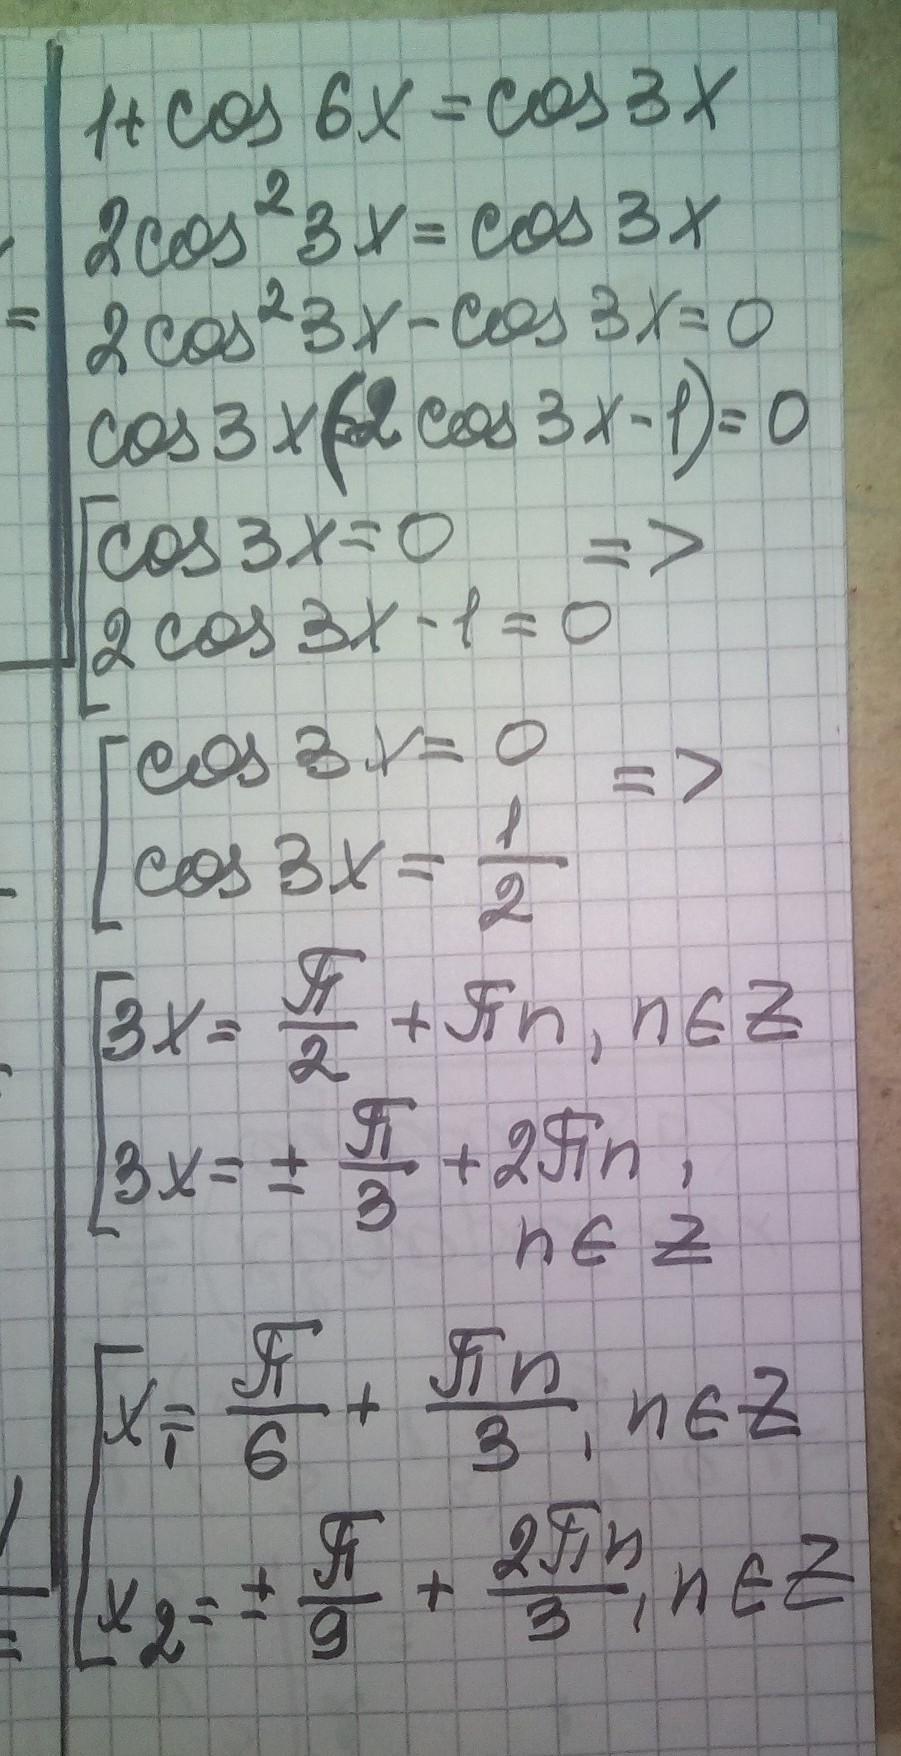 1+ cos 6x = cos 3x
2cos² 3x = cos 3x
2cos² 3x - cos 3x = 0
cos 3x (2 cos 3x - 1) = 0
[ cos 3x = 0 =>
2 cos 3x - 1 = 0
[ cos 3x = 0 =>
cos 3x = 1/2
[ 3x = π/2 + πn, n ∈ Z
3x = ± π/3 + 2πn,
n ∈ Z
[ x₁ = π/6 + πn/3, n ∈ Z
x₂ = ± π/9 + 2πn/3, n ∈ Z